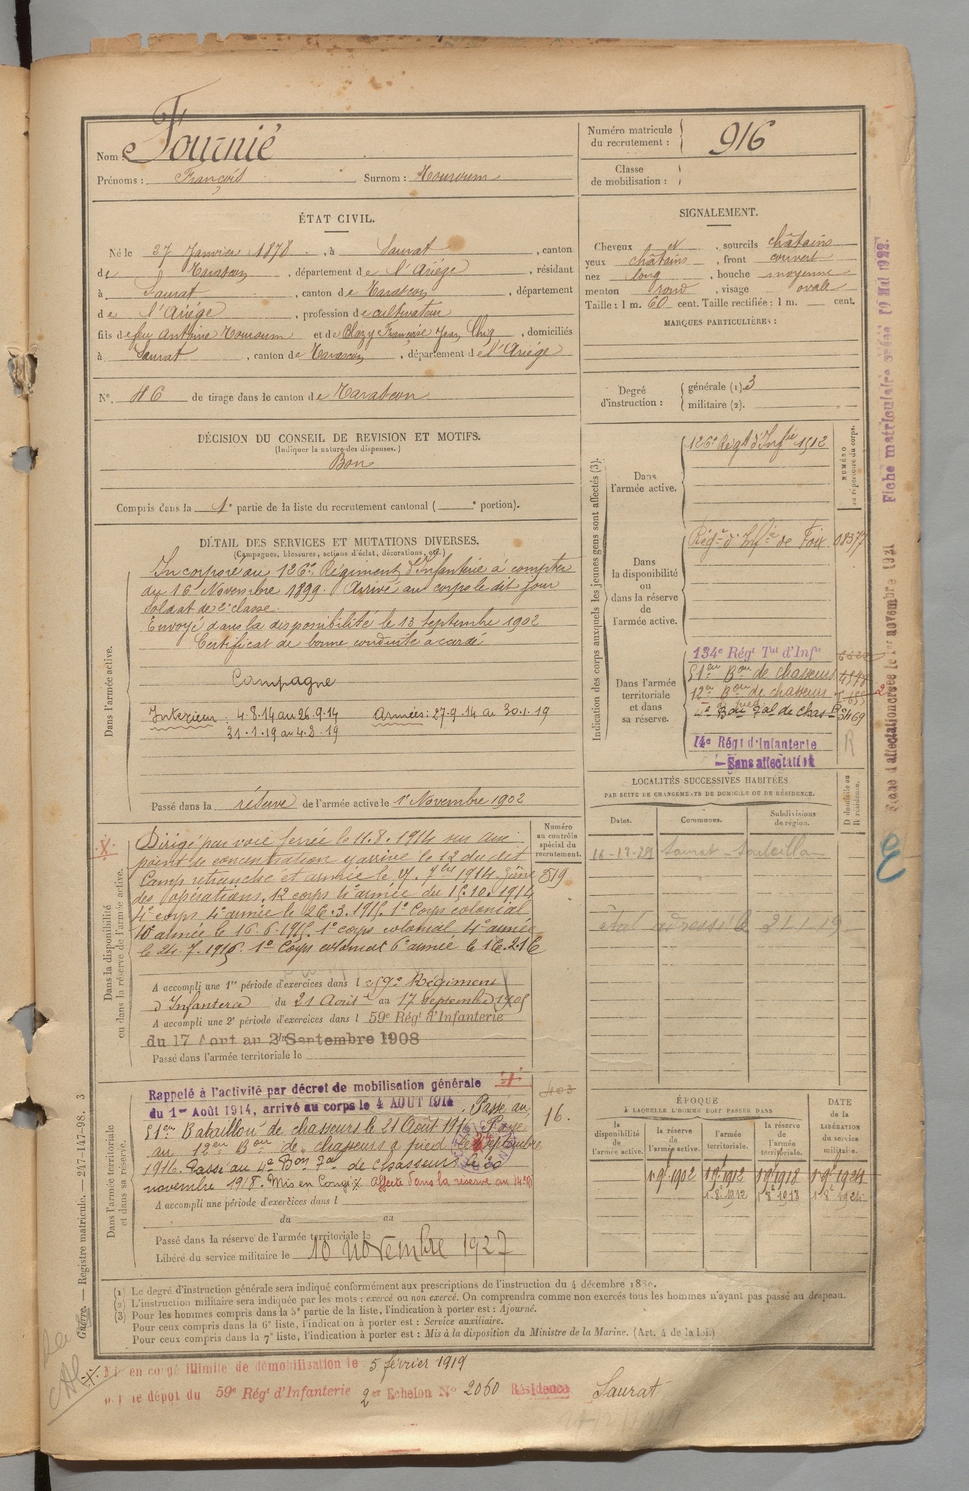 Nom : Fournié
Prénoms : François Surnom : Mouroum
Numéro matricule du recrutement : 916
Classe de mobilisation :
ÉTAT CIVIL.
Né le 27 Janvier 1878, à Saurat, canton
de Tarascon, département de l'Ariége, résidant
à Saurat, canton de Tarascon, département
de l'Ariége, profession de cultivateur
fils de feu Antoine Mouroum et de Françoise Jean, domiciliés
à Saurat, canton de Tarascon, département de l'Ariége
N° 46 de tirage dans le canton de Tarascon
SIGNALEMENT.
Cheveux et, sourcils châtains
yeux châtains, front couvert
nez long, bouche moyenne
menton rond, visage ovale
Taille : 1 m. 60 cent. Taille rectifiée : 1 m. cent.
MARQUES PARTICULIÈRES :
Degré d'instruction : générale (1). 3
militaire (2).
DÉCISION DU CONSEIL DE REVISION ET MOTIFS.
(Indiquer la nature des dispenses.)
Bon
Compris dans la 1e partie de la liste du recrutement cantonal ( e portion).
DÉTAIL DES SERVICES ET MUTATIONS DIVERSES.
(Campagnes, blessures, actions d'éclat, décorations, etc.)
Dans l'armée active.
Incorporé au 126e Régiment d'Infanterie à compter
du 16 Novembre 1899. Arrivé au corps le dit jour
soldat de 2e classe.
Envoyé dans la disponibilité le 13 Septembre 1902
Certificat de bonne conduite accordé
Campagne
Intérieur : 4.8.14 au 26.9.14 Armées : 27.9.14 au 30.1.19
31.1.19 au 4.2.19
Passé dans la réserve de l'armée active le 1er Novembre 1902
Indication des corps auxquels les jeunes gens sont affectés (3).
NUMÉRO au répertoire du corps.
Dans l'armée active.
126e Régt d'Infie 1512
Dans la disponibilité ou dans la réserve de l'armée active.
Régt d'Infie de Foix 0837
Dans l'armée territoriale et dans sa réserve.
134e Régt Tal d'Infie
51eme Bon de chasseurs
12eme Bon de chasseurs
4e Bon Tal de chasrs
14e Régt d'Infanterie
Sans affectation
R
LOCALITÉS SUCCESSIVES HABITÉES
PAR SUITE DE CHANGEMENTS DE DOMICILE OU DE RÉSIDENCE.
Dates. Communes. Subdivisions de région. D domicile ou R résidence.
Saurat
21.1.19
Dans la disponibilité ou dans la réserve de l'armée active.
Numéro au contrôle spécial du recrutement.
819
Dirigé par voie ferrée le 11.8.1914 sur un
point de concentration y arrive le 12 du dit
Camp retranché et armée le Zône
des opérations, 12 corps 4e armée du 15.10.1914
4e corps 4e armée le 26.3.1915. 1er Corps colonial
10e armée le 16.6.1915. 1er corps colonial 4e armée
le 24.7.1915. 1er Corps colonial 6e armée le 16.2.16
A accompli une 1re période d'exercices dans le 59e Régiment
d'Infanterie du 21 Août au 17 Septembre 1905
A accompli une 2e période d'exercices dans l 59e Régt d'Infanterie
du 17 Aout au Septembre 1908
Passé dans l'armée territoriale le
Dans l'armée territoriale et dans sa réserve.
Rappelé à l'activité par décret de mobilisation générale
du 1er Août 1914, arrivé au corps le 4 AOUT 1914. Passé au
51eme Bataillon de chasseurs le 21 Août 1916. Passé
au 12eme Bon de chasseurs à pied le Septembre
1916. Passé au 4e Bon Tal de Chasseurs le 30
novembre 1918. Mis en Congé X Affecté dans la réserve au 14e RI
403
16.
A accompli une période d'exercices dans l
du au
Passé dans la réserve de l'armée territoriale le
Libéré du service militaire le 10 novembre 1927
ÉPOQUE
À LAQUELLE L'HOMME DOIT PASSER DANS
DATE de la LIBÉRATION du service militaire.
la disponibilité de l'armée active. la réserve de l'armée active. l'armée territoriale. la réserve de l'armée territoriale.
1.9bre 1902 1.9bre 1912 1.9bre 1918 1.9bre 1924
(1) Le degré d'instruction générale sera indiqué conformément aux prescriptions de l'instruction du 4 décembre 1889.
(2) L'instruction militaire sera indiquée par les mots : exercé ou non exercé. On comprendra comme non exercés tous les hommes n'ayant pas passé au drapeau.
(3) Pour les hommes compris dans la 5e partie de la liste, l'indication à porter est : Ajourné.
Pour ceux compris dans la 6e liste, l'indication à porter est : Service auxiliaire.
Pour ceux compris dans la 7e liste, l'indication à porter est : Mis à la disposition du Ministre de la Marine. (Art. 4 de la loi.)
en congé illimité de démobilisation le 5 février 1919
le dépôt du 59e Régt d'Infanterie 2er Echelon N° 2060 Résidence Saurat
Guerre. — Registre matricule. — 247-147-98. 3
Fiche matriculaire créée 10 Mai 1922.
Fiche d'affectation créée le 1er novembre 1921